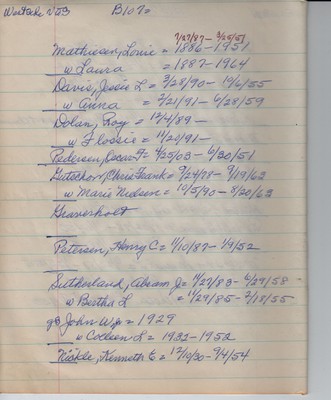 Westside V53 B107
7/27/87 - 3/25/51
Mathiesen, Louie = 1886 - 1951
w Laura = 1887 - 1964
Davis, Jessie L = 3/28/90 - 10/6/55
w Anna = 2/21/91 - 6/28/59
Dolan, Roy = 12/4/89 -
w Flossie = 11/20/91 -
Pedersen, Oscar F = 4/25/03 - 6/30/51
Gutschow, Chris Frank = 9/24/78 - 7/19/62
w Marie Nielsen = 10/5/90 - 8/20/62
Graverholt
Petersen, Henry C = 11/10/87 - 1/9/52
Sutherland, Abram J = 11/27/83 - 6/29/58
w Bertha L = 11/29/85 - 2/18/55
John W Jr = 1929
w Colleen L = 1932 - 1952
Nickle, Kenneth E = 12/10/30 - 9/4/54